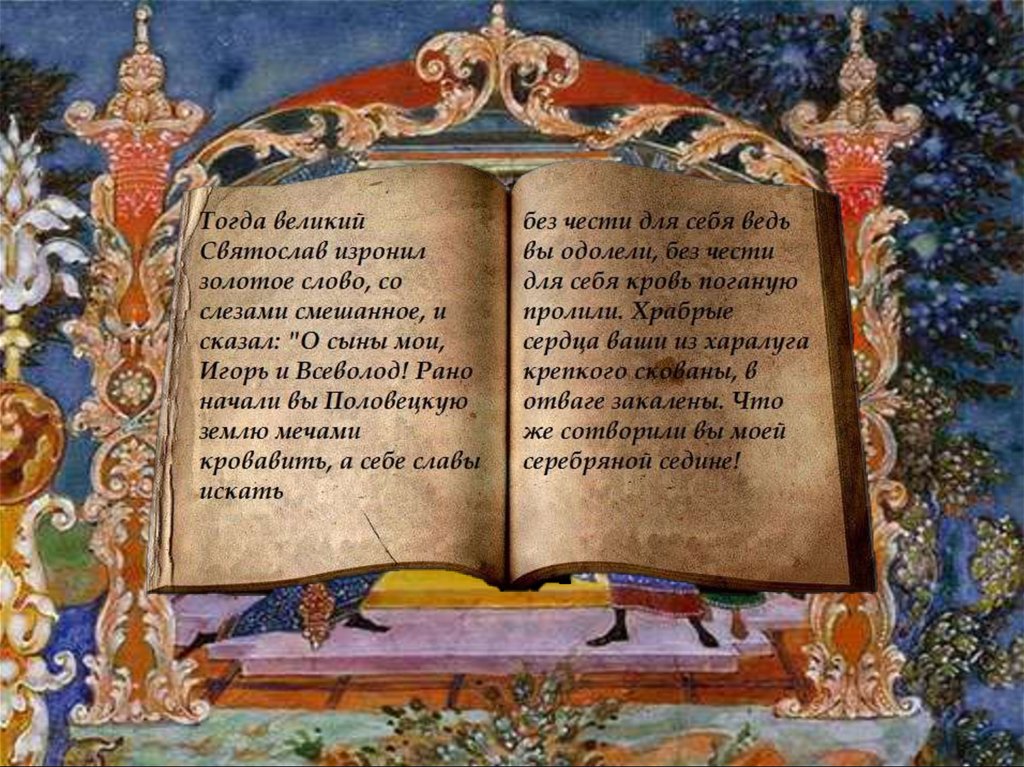 Тогда великий
Святослав изронил
золотое слово, со
слезами смешанное, и
сказал: "О сыны мои,
Игорь и Всеволод! Рано
начали вы Половецкую
землю мечами
кровавить, а себе славы
искать
без чести для себя ведь
вы одолели, без чести
для себя кровь поганую
пролили. Храбрые
сердца ваши из харалуга
крепкого скованы, в
отваге закалены. Что
же сотворили вы моей
серебряной седине!